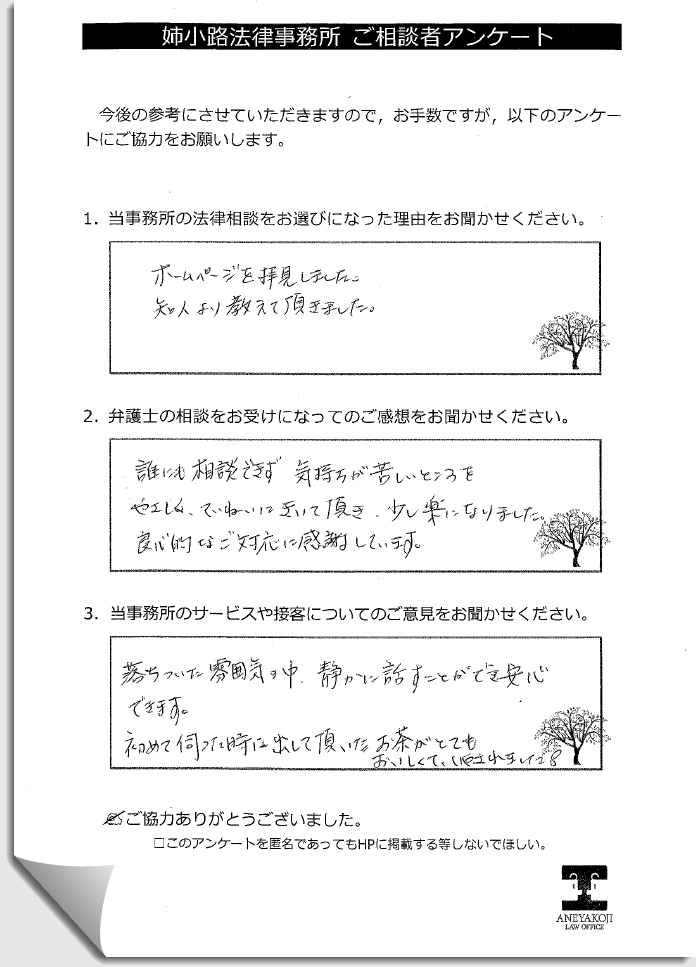 姉小路法律事務所 ご相談者アンケート
今後の参考にさせていただきますので，お手数ですが，以下のアンケー
トにご協力をお願いします。
1．当事務所の法律相談をお選びになった理由をお聞かせください。
ホームページを拝見しました。
知人より教えて頂きました。
2．弁護士の相談をお受けになってのご感想をお聞かせください。
誰にも相談できず 気持ちが苦しいところを
やさしく、ていねいに きいて頂き、少し楽になりました。
良心的なご対応に感謝しています。
3．当事務所のサービスや接客についてのご意見をお聞かせください。
落ちついた雰囲気の中、静かに話すことができ安心
できます。
初めて伺った時に出して頂いたお茶がとても
おいしくて、いやされました
ご協力ありがとうございました。
□このアンケートを匿名であってもHPに掲載する等しないでほしい。
ANEYAKOJI
LAW OFFICE